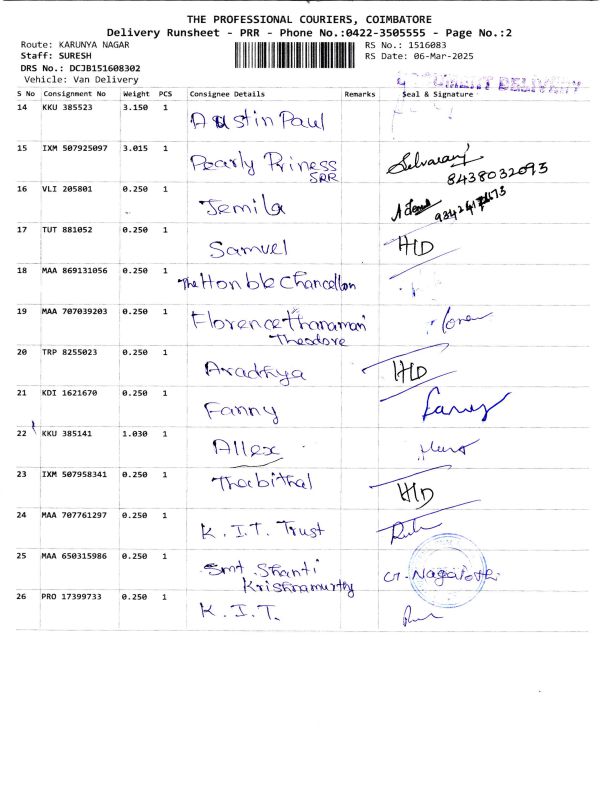 THE PROFESSIONAL COURIERS, COIMBATORE
Delivery Runsheet - PRR - Phone No.:0422-3505555 - Page No.:2
Route: KARUNYA NAGAR RS No.: 1516083
Staff: SURESH RS Date: 06-Mar-2025
DRS No.: DCJB151608302
Vehicle: Van Delivery
DELIVERY
S No Consignment No Weight PCS Consignee Details Remarks Seal & Signature
14 KKU 385523 3.150 1 Austin Paul
15 IXM 507925097 3.015 1 Pearly Priness Selvarani
SRR 8438032093
16 VLI 205801 0.250 1 Jemila
17 TUT 881052 0.250 1 Samuel H/D
18 MAA 869131056 0.250 1 The Hon ble Chancellon
19 MAA 707039203 0.250 1 Florence Thanaman
Theodore
20 TRP 8255023 0.250 1 Aradhya H/D
21 KDI 1621670 0.250 1 Fanny Fanny
22 KKU 385141 1.030 1 Allex
23 IXM 507958341 0.250 1 Thabithal H/D
24 MAA 707761297 0.250 1 K. I.T. Trust
25 MAA 650315986 0.250 1 Smt. Shanti
Krishnamurthy
26 PRO 17399733 0.250 1 K. I.T.